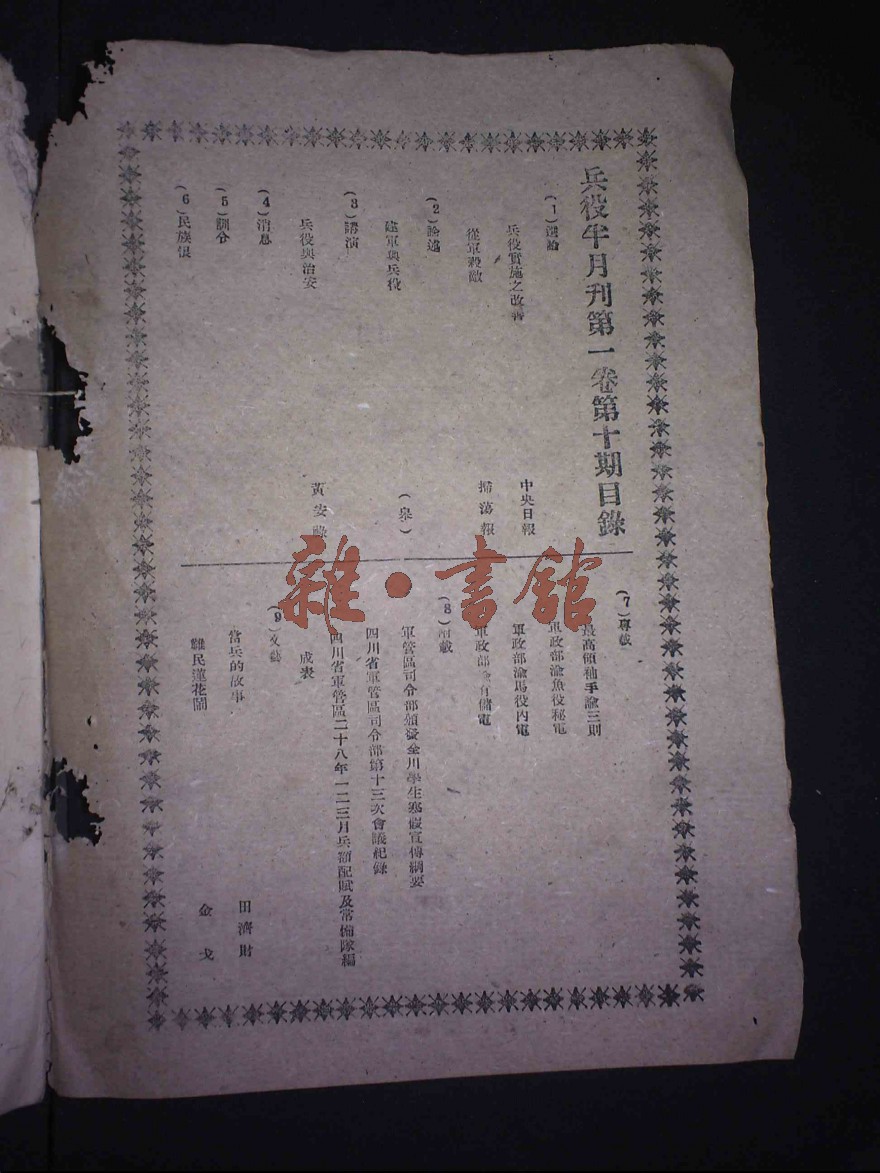 兵役半月刊第一卷第十期目錄
(1)選論
兵役實施之改善 中央日報
從軍殺敵 掃蕩報
(2)論述
建軍與兵役 (皋)
(3)講演
兵役與治安 黃安
(4)消息
(5)訓令
(6)民族恨
(7)專載
最高領袖手諭三則
軍政部渝魚役秘電
軍政部渝馬役丙電
軍政部渝 儲電
(8) 載
軍管區司令部頒發全川學生寒假宣傳綱要
四川省軍管區司令部第十三次會議紀錄
四川省軍管區二十八年一二三月兵額配賦及常備隊編
成表
(9)文藝
當兵的故事 田濟財
難民蓮花鬧 金戈
雜·書館